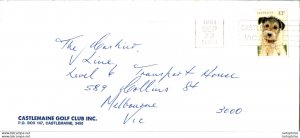 The Cashier,
V Line,
Level 6 Transport House
589 Collins St
Melbourne
Vic 3000
CASTLEMAINE GOLF CLUB INC.
P.O. BOX 147, CASTLEMAINE, 3450